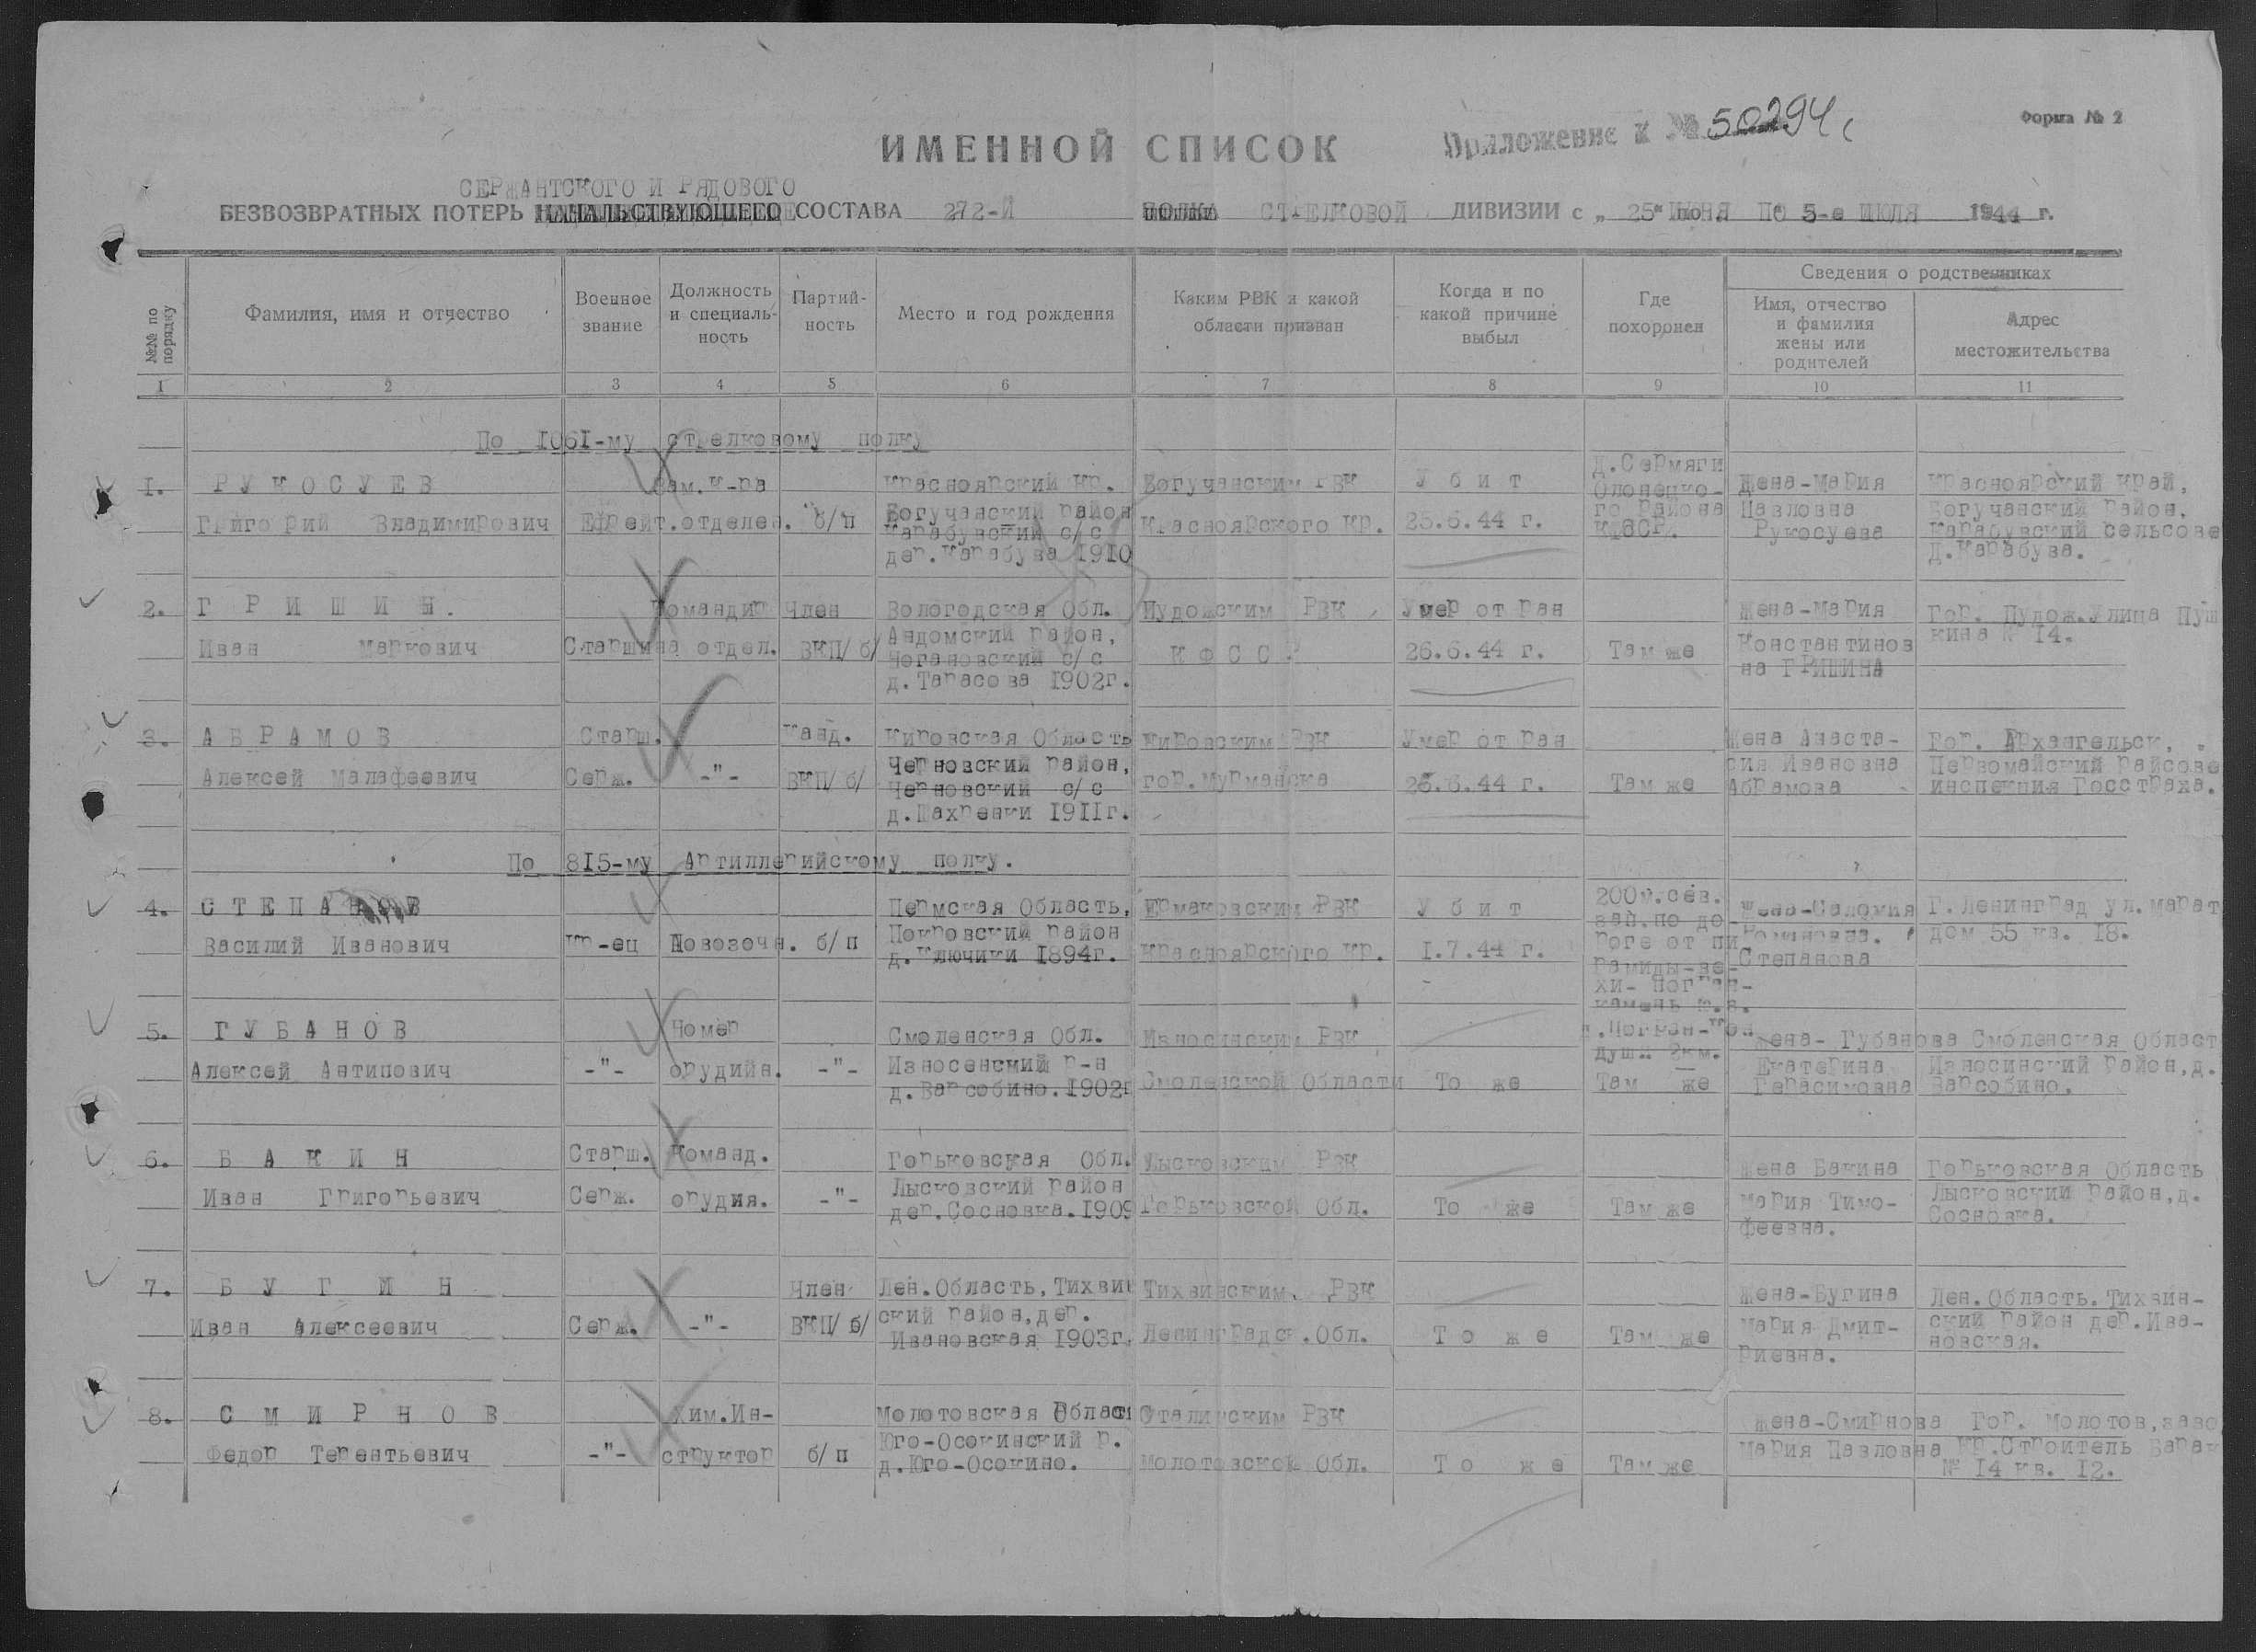 Форма № 2
Приложение к № 50294с
ИМЕННОЙ СПИСОК
СЕРЖАНТСКОГО И РЯДОВОГО
БЕЗВОЗВРАТНЫХ ПОТЕРЬ НАЧАЛЬСТВУЮЩЕГО СОСТАВА 272-Й ПОЛКА СТРЕЛКОВОЙ ДИВИЗИИ с „ 25" ИЮНЯ ПО 5-е ИЮЛЯ 1944 г.
№№ по порядку
Фамилия, имя и отчество
Военное звание
Должность и специаль- ность
Партий- ность
Место и год рождения
Каким РВК и какой области призван
Когда и по какой причине выбыл
Где похоронен
Сведения о родственниках
Имя, отчество и фамилия жены или родителей
Адрес местожительства
1 2 3 4 5 6 7 8 9 10 11
По 1061-му стрелковому полку
1. РУКОСУЕВ
Григорий Владимирович
Ефрейт.
Зам. К-ра
отделен.
б/п
Красноярский Кр.
Богучанский район
Карабувский с/с
дер. Карабува 1910
Богучанским РВК
Красноярского Кр.
Убит
25.6.44 г.
Д. Сермяги
Олонецко-
го района
КФССР.
Жена-Мария
Павловна
Рукосуева
Красноярский край,
Богучанский район,
Карабувский сельсове
Д. Карабува.
2. ГРИШИН.
Иван Маркович
Старшина
Командир
отдел.
Член
ВКП/б/
Вологодская Обл.
Андомский район,
с/с
д. Тарасова 1902г.
Пудожским РВК
КФССР
Умер от ран
26.6.44 г.
Там же
Жена-Мария
Константинов
на ГРИШИНА
Гор. Пудож. Улица Пуш
кина № 14.
3. АБРАМОВ
Алексей Малафеевич
Старш.
Серж.
-"-
Канд.
ВКП/б/
Кировская Область
Черновский район,
Черновский с/с
д. Шахренки 1911г.
Кировским РВК
гор. Мурманска
Умер от ран
26.6.44 г.
Там же
Жена Анаста-
сия Ивановна
Абрамова
Гор. Архангельск,
Первомайский райсове
инспекция Госстраха.
По 815-му Артиллерийскому полку.
4. СТЕПАНОВ
Василий Иванович
Кр-ец
Повозочн.
б/п
Пермская Область,
Покровский район
д. Ключики 1894г.
Ермаковским РВК
Красноярского Кр.
Убит
1.7.44 г.
200м. сев.
зап. по до
роге от пи
рамиды-ве-
хи- погран-
камень
Жена-Саломия
Степанова
Г. Ленинград ул. Марат
дом 55 кв. 18.
5. ГУБАНОВ
Алексей Антипович
-"-
Номер
орудийн.
-"-
Смоленская Обл.
Износенский р-н
д. Варсобино. 1902г
Износинским РВК
Смоленской Области
То же
2км.
Там же
Жена- Губанова
Екатерина
Герасимовна
Смоленская Област
Износинский район, д.
Варсобино.
6. БАКИН
Иван Григорьевич
Старш.
Серж.
Команд.
орудия.
-"-
Горьковская Обл.
Лысковский район
дер. Сосновка. 1909
Лысковским РВК
Горьковской Обл.
То же
Там же
Жена Бакина
Мария Тимо-
феевна.
Горьковская Область
Лысковский район, д.
Сосновка.
7. БУГИН
Иван Алексеевич
Серж.
-"-
Член
ВКП/б/
Лен. Область, Тихвин
ский район, дер.
Ивановская 1903г.
Тихвинским. РВК
Ленинградск. Обл.
То же
Там же
Жена-Бугина
Мария Дмит-
риевна.
Лен. Область. Тихвин-
ский район дер. Ива-
новская.
8. СМИРНОВ
Федор Терентьевич
-"-
Хим. Ин-
структор
б/п
Молотовская Област
Юго-Осокинский р.
д. Юго-Осокино.
Сталинским РВК
Молотовской Обл.
То же
Там же
Жена-Смирнова
Мария Павловна
Гор. Молотов, заво
Кр. Строитель Барак
№ 14 кв. 12.